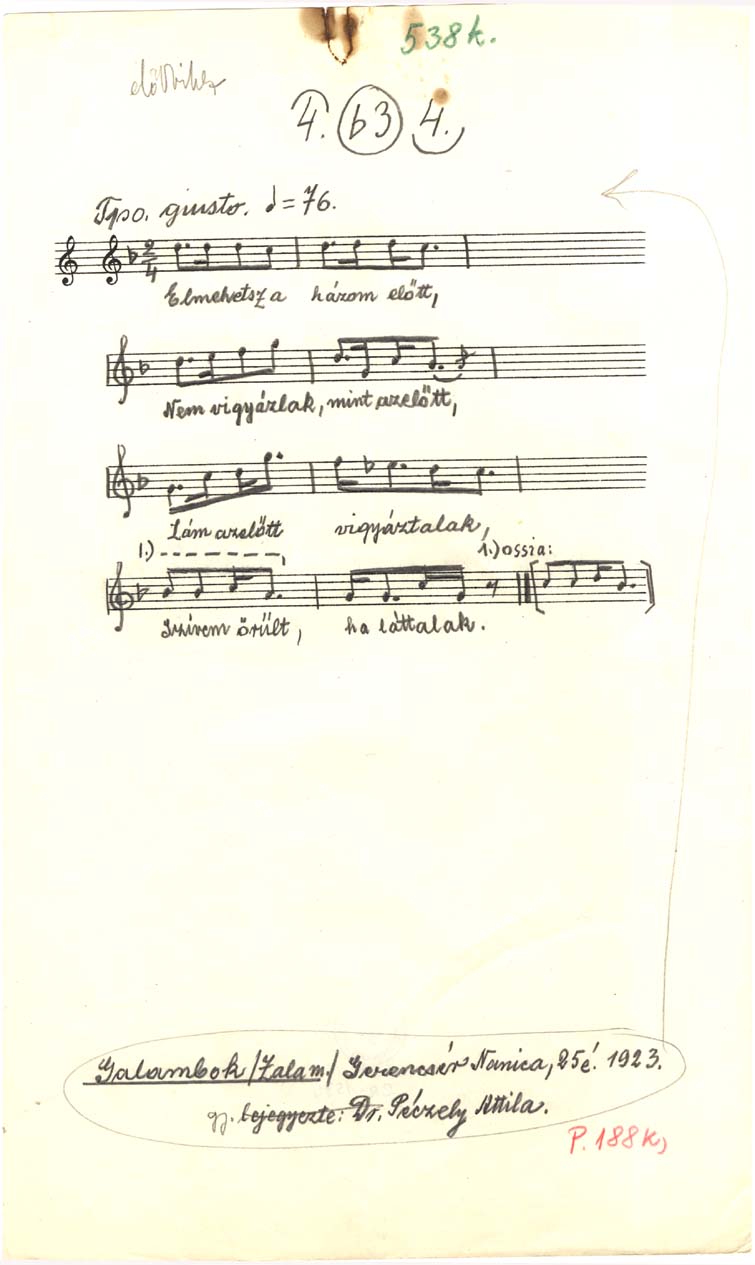 538k.
4. b3 4.
Tpo. giusto. ♩=76.
2/4
Elmehetsz a három előtt,
Nem vigyázlak, mint azelőtt,
Lám azelőtt vigyáztalak,
1.) 1.) ossia:
Szivem örült, ha láttalak.
Galambok /Zalam./ Gerencsér Nanica, 25é. 1923.
gy. bejegyezte: Dr. Péczely Attila.
P. 188k,